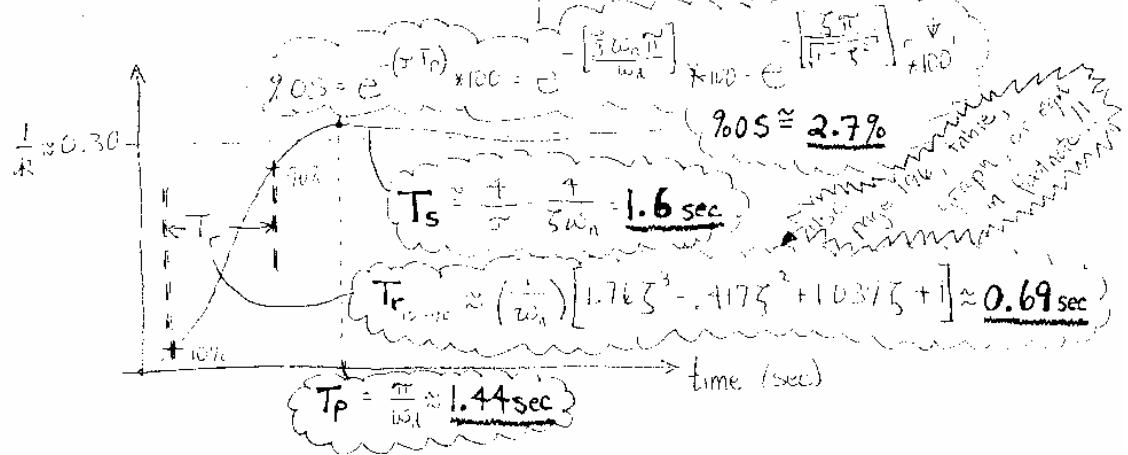 %OS = e^-(σTp) *100 = e^-[ζωnπ/ωd] *100 = e^-[ζπ/√1-ζ²] *100
%OS ≅ 2.7%
1/k ≈ 0.30
90%
Ts ≅ 4/σ = 4/ζωn = 1.6 sec
page
table,
graph, or eqn
in footnote!!
Tr
Tr10-90 ≈ (1/ωn)[1.76ζ³ - .417ζ² + 1.039ζ + 1] ≈ 0.69 sec
10%
time (sec)
Tp = π/ωd ≈ 1.44 sec